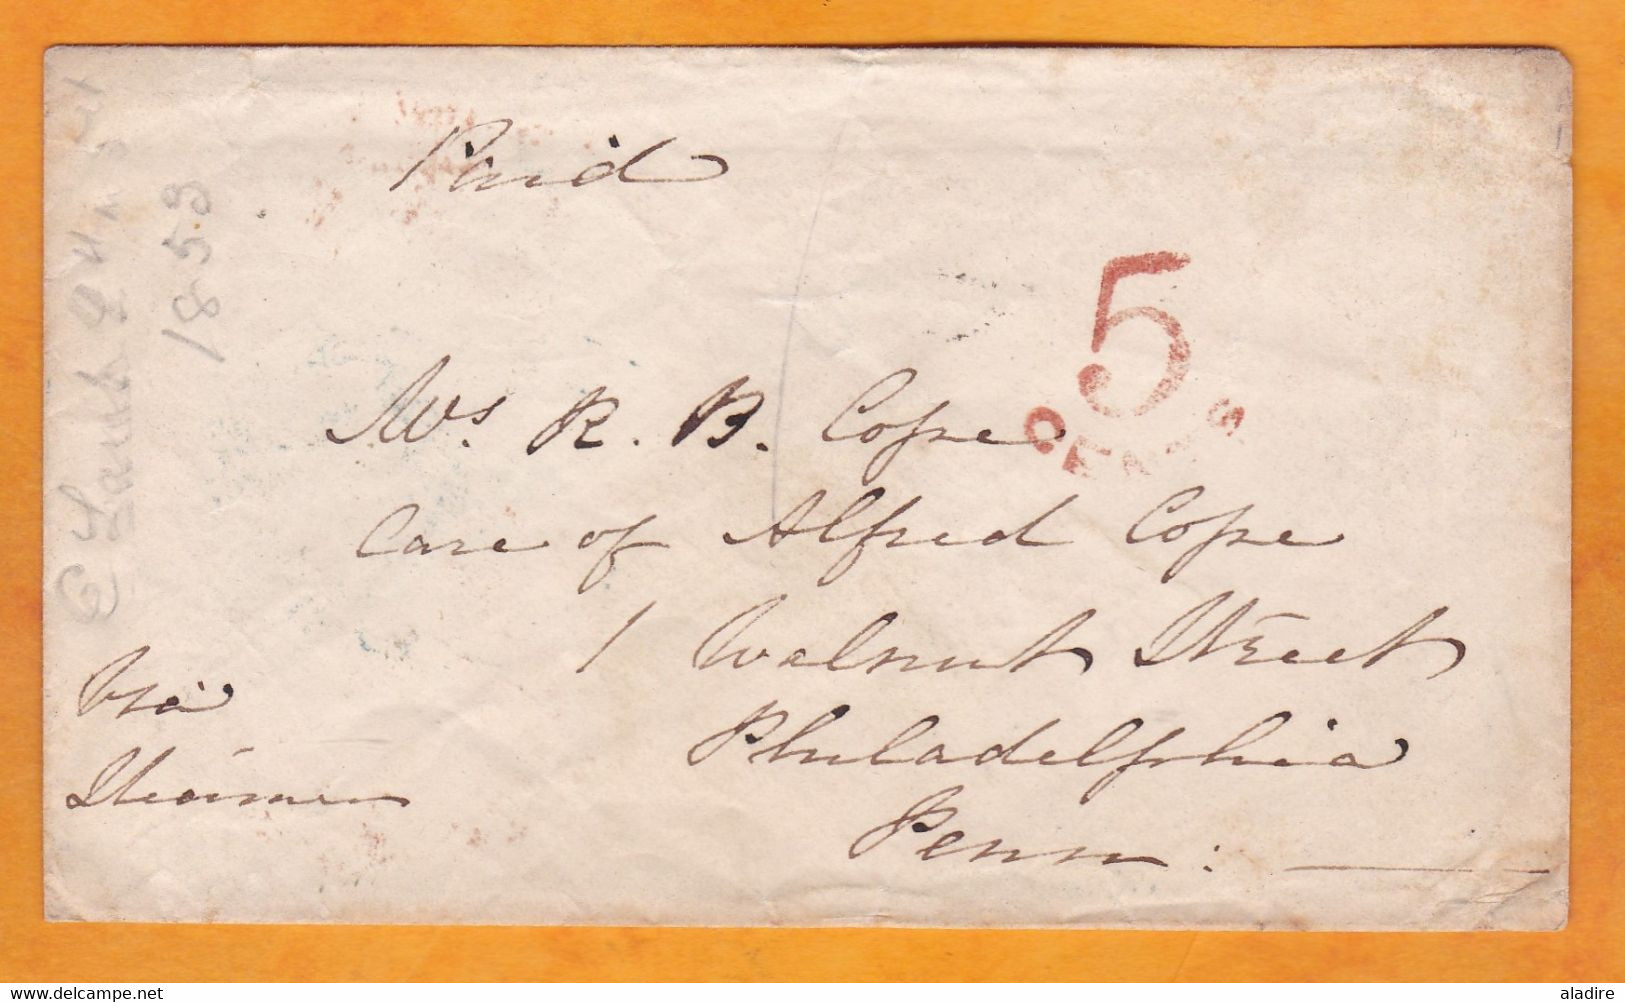 Paid
5
CENTS
Mrs. R. B. Cope
Care of Alfred Cope
1 Walnut Street
Philadelphia
Penn:
Via
Steamer
1853
delcampe.net
aladire